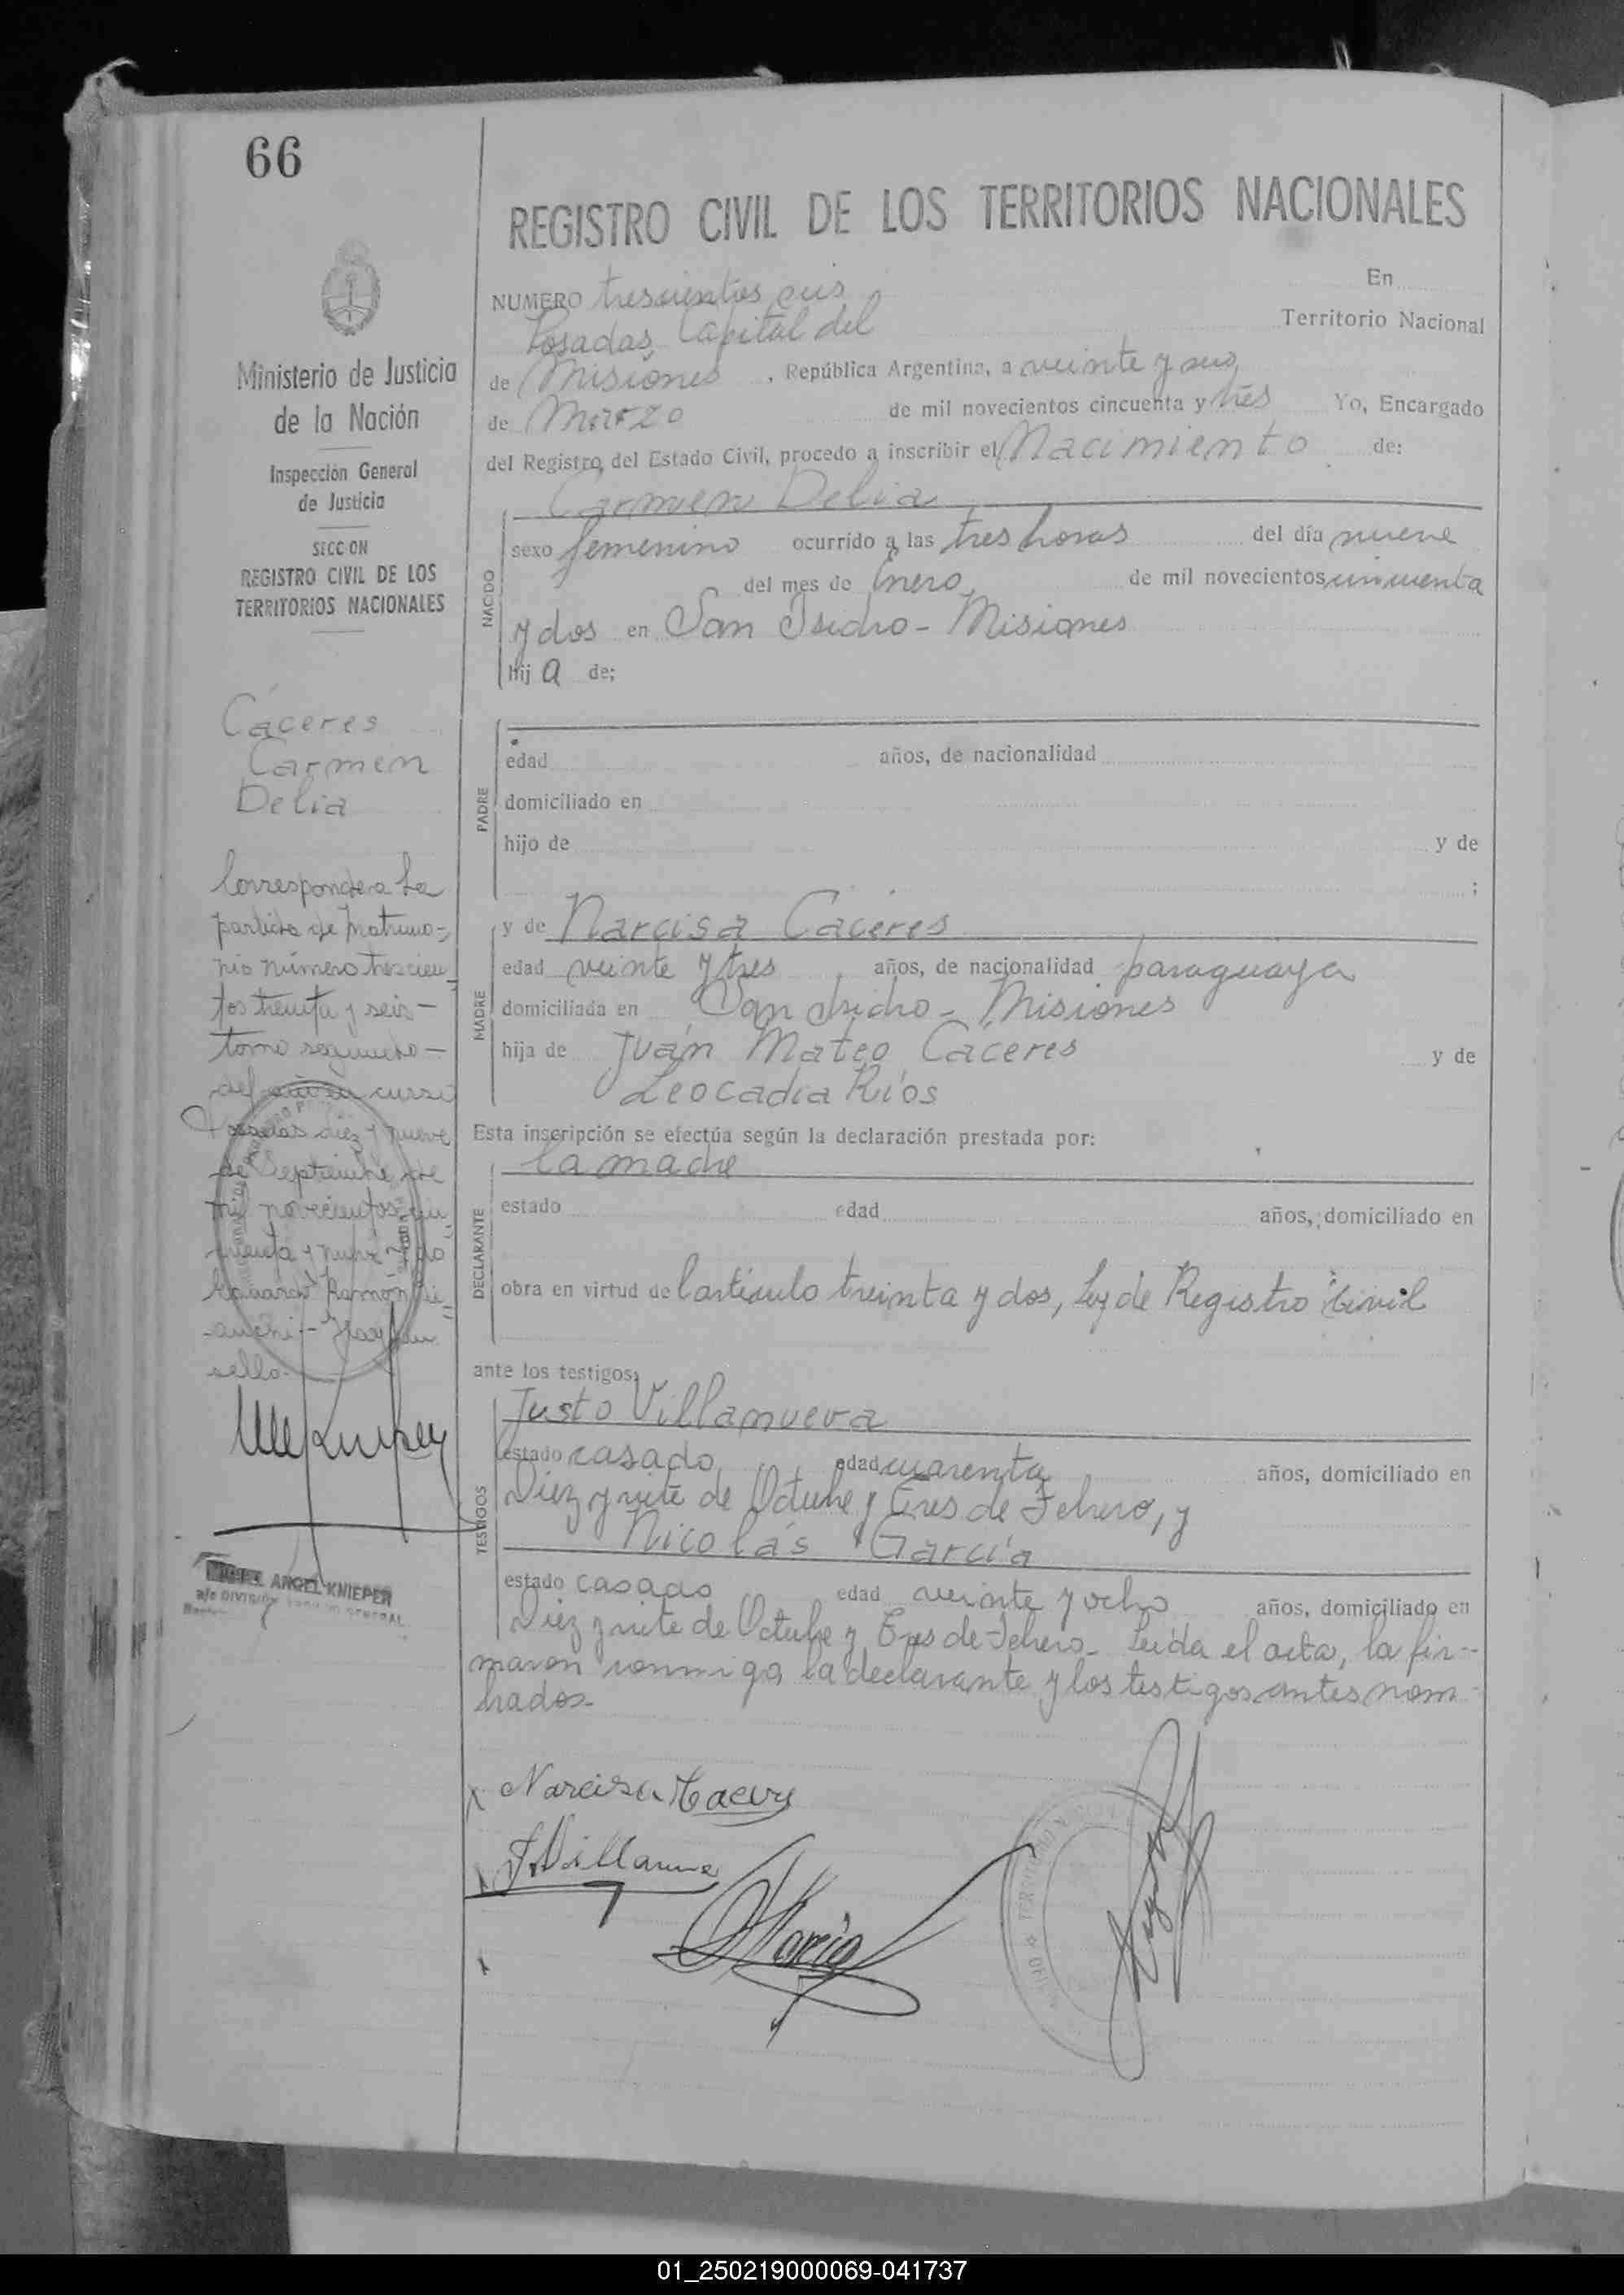 66
REGISTRO CIVIL DE LOS TERRITORIOS NACIONALES
Ministerio de Justicia
de la Nación
Inspección General
de Justicia
SECCION
REGISTRO CIVIL DE LOS
TERRITORIOS NACIONALES
Cáceres
Carmen
Delia
Corresponde a la
partida de matrimo-
nio número trescien-
tos treinta y seis-
tomo segundo-
del año en curso
Posadas diez y nueve
de Septiembre de
mil novecientos cin-
cuenta y nueve
Ramón
sello.
ANGEL KNIEPER
a/c DIVISION
NUMERO trescientos seis En
Posadas, Capital del Territorio Nacional
de Misiones, República Argentina, a veinte y seis
de Marzo de mil novecientos cincuenta y tres Yo, Encargado
del Registro del Estado Civil, procedo a inscribir el Nacimiento de:
Carmen Delia
NACIDO
sexo femenino ocurrido a las tres horas del día nueve
del mes de Enero de mil novecientos cincuenta
y dos en San Isidro - Misiones
hij a de;
PADRE
edad años, de nacionalidad
domiciliado en
hijo de y de
;
MADRE
y de Narcisa Cáceres
edad veinte y tres años, de nacionalidad paraguaya
domiciliada en San Isidro - Misiones
hija de Juán Mateo Cáceres y de
Leocadia Ríos
Esta inscripción se efectúa según la declaración prestada por:
la madre
DECLARANTE
estado edad años, domiciliado en
obra en virtud del artículo treinta y dos, Ley de Registro Civil
ante los testigos:
TESTIGOS
Justo Villanueva
estado casado edad cuarenta años, domiciliado en
Diez y siete de Octubre y Tres de Febrero, y
Nicolás García
estado casado edad veinte y ocho años, domiciliado en
Diez y siete de Octubre y Tres de Febrero. Leída el acta, la fir-
maron conmigo, la declarante y los testigos antes nom-
brados-
Narcisa Caceres
J. Villanueva
01_250219000069-041737